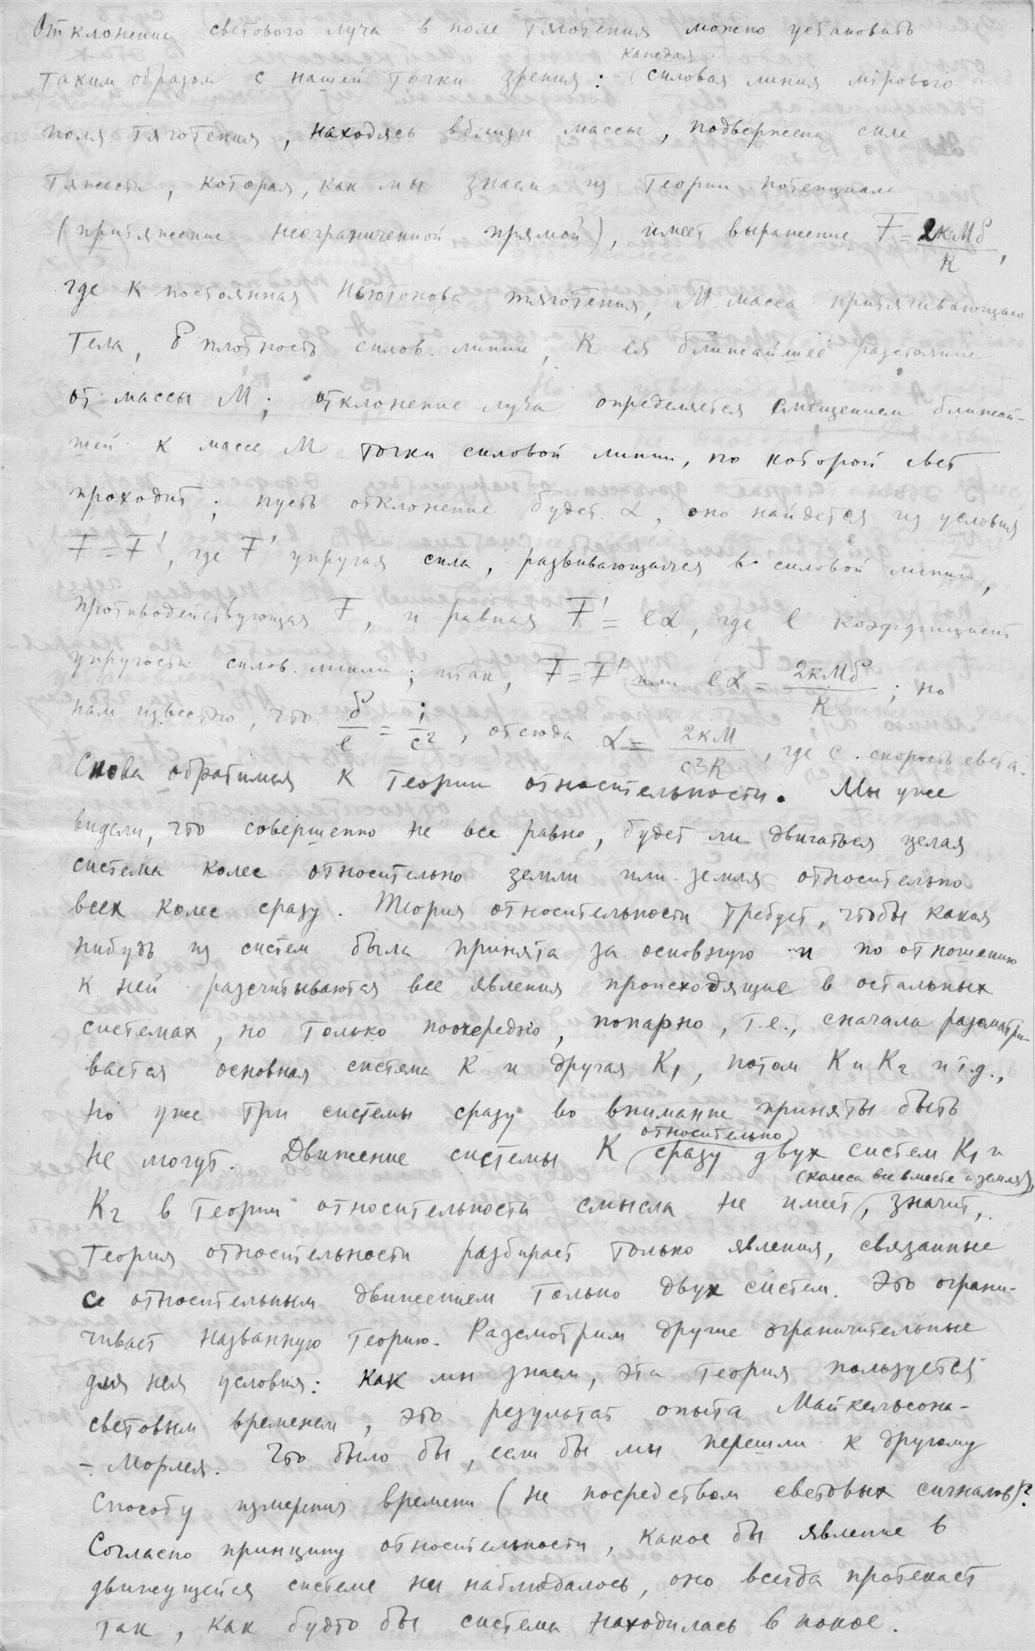 Отклонение светового луча в поле тяготения можно установить
таким образом с нашей точки зрения: каждая силовая линия мірового
поля тяготения, находясь вблизи массы, подвержена силе
тяжести, которая, как мы знаем из теории потенциала
(притяжение неограниченной прямой), имеет выражение F = 2кМδ/R,
где К постоянная Ньютонова тяготения, М масса притягивающаго
тела, δ плотность силов. линии, R ея ближайшее разстояние
от массы М; отклонение луча определяется смещением ближай-
шей к массе М точки силовой линии, по которой свет
проходит; пусть отклонение будет α, оно найдется из условия
F = F', где F' упругая сила, развивающаяся в силовой линии,
противодействующая F, и равная F' = eα, где e коэффициент
упругости силов. линии; итак, F = F' или eα = 2кМδ/R; но
нам известно, что δ/e = 1/c², отсюда α = 2кМ/c²R, где с. скорость света.
Снова обратимся к теории относительности. Мы уже
видели, что совершенно не все равно, будет ли двигаться целая
система колес относительно земли или земля относительно
всех колес сразу. Теория относительности требует, чтобы какая
нибудь из систем была принята за основную и по отношению
к ней разсчитываются все явления происходящие в остальных
системах, но только поочередно, попарно, т.е., сначала разсматри-
вается основная система К и другая К₁, потом К и К₂ и т.д.,
но уже три системы сразу во внимание приняты быть
не могут. Движение системы К относительно сразу двух систем К₁ и
К₂ в теории относительности смысла не имеет (колеса все вместе и земля), значит,
теория относительности разбирает только явления, связанные
с относительным движением только двух систем. Это ограни-
чивает названную теорию. Разсмотрим другие ограничительные
для нея условия: как мы знаем, эта теория пользуется
световым временем, это результат опыта Майкельсона-
- Морлея. Что было бы, если бы мы перешли к другому
способу измерения времени (не посредством световых сигналов)?
Согласно принципу относительности, какое бы явление в
движущейся системе ни наблюдалось, оно всегда протекает
так, как будто бы система находилась в покое.